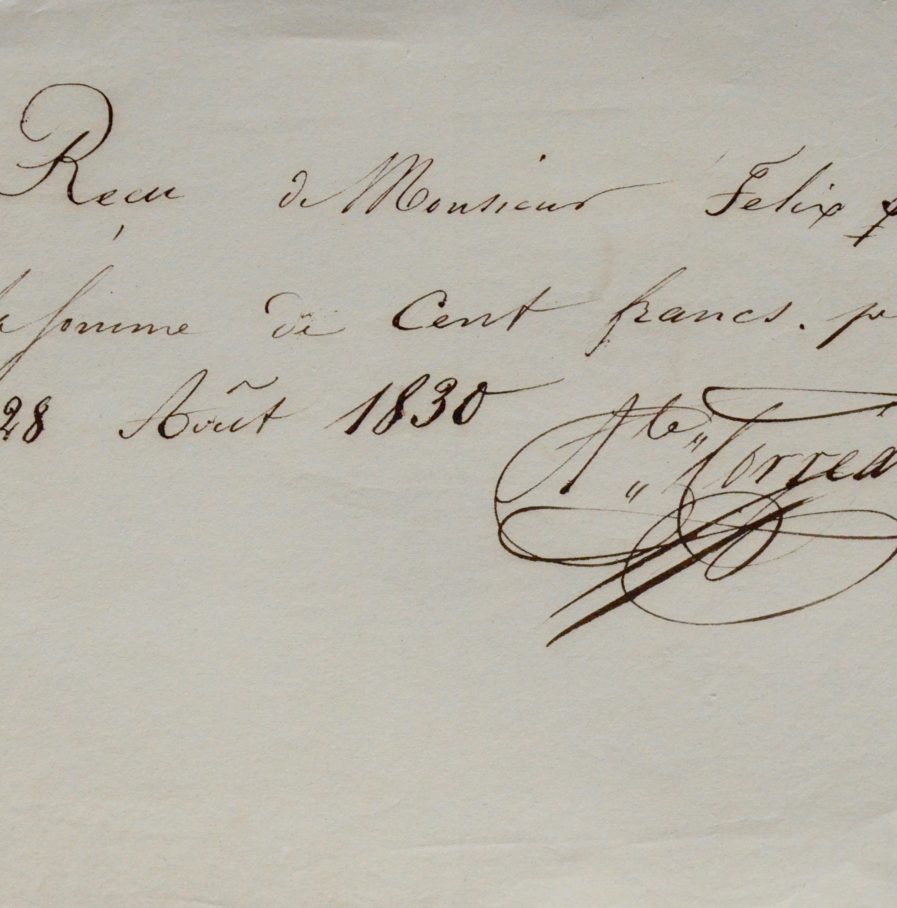 Reçu de Monsieur Felix
la somme de Cent francs.
28 Août 1830
Ate Corréa